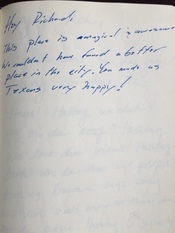 Hey Richard,
This place is amazing & awesome
We couldn't have found a better
place in the city. You made us
Texans very happy!